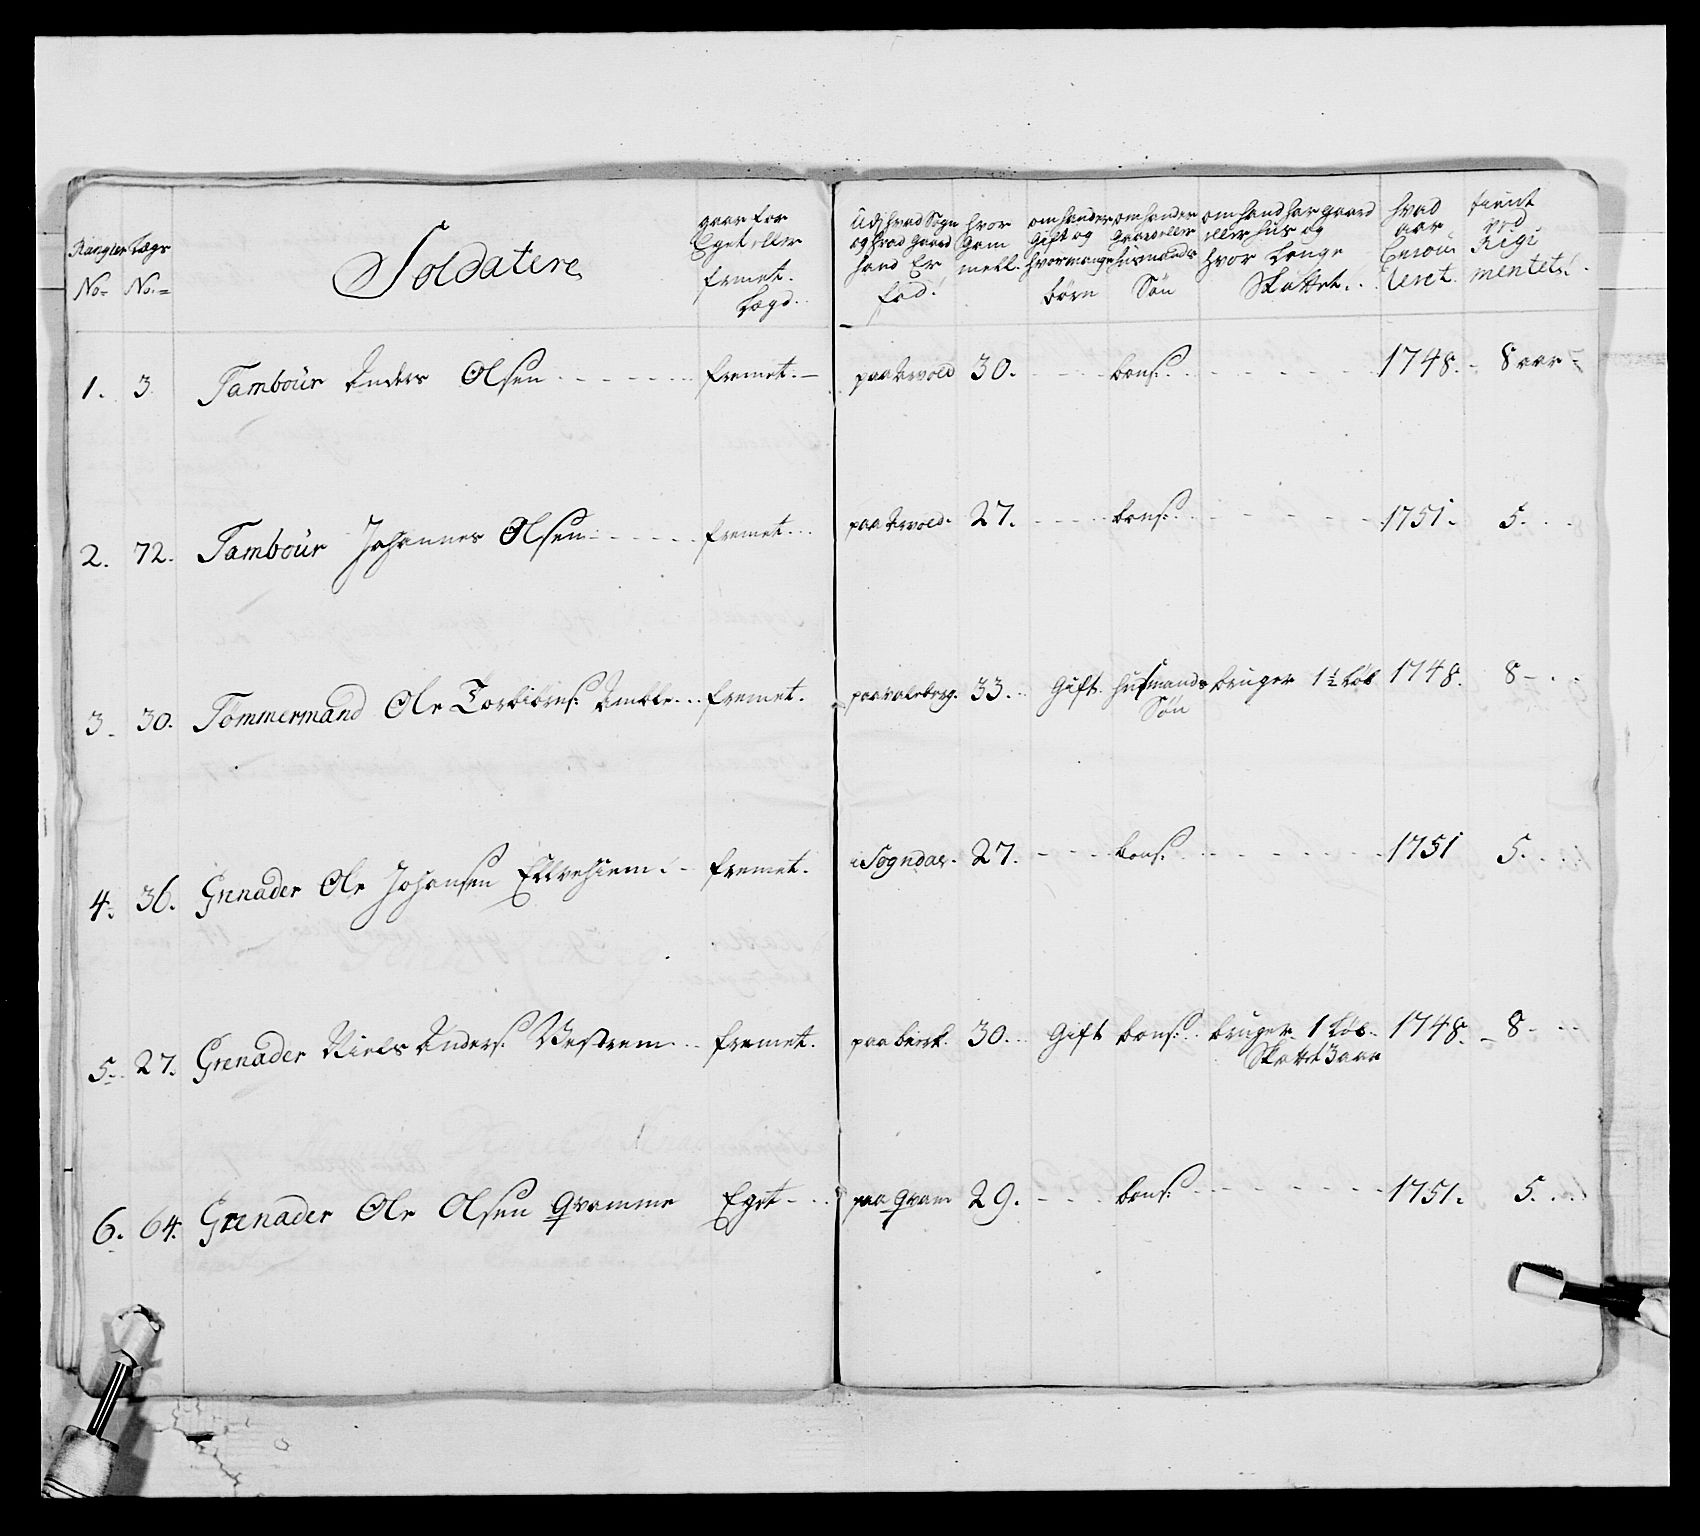 Rangler No=
Lægs No:=
Soldatere
gaar for Eget eller fremet. Lægd.
Udj hvad Sogn og hvad gaard hand Er fød!
hvor Gam mell.
om hand er Gift og hvor mange børn
om hand er Gaard eller husmands Søn
om hand har gaard eller hus og hvor Længe Skattet.
hvad aar Enroulleret.
tient ved Regimentet!
1. 3 Tambour Anders Olsen fremet. paa 30. bons: 1748. 8 aar
2. 72. Tambour Johannes Olsen fremet. paa 27. bons: 1751. 5.
3. 30. Tømmermand Ole Torbiörns: Amble fremet. paa 33. Gift husmands bruger 1½ Løb 1748. 8
Søn
4. 36. Grenader Ole Johansen fremet. i Sogndal. 27. bons: 1751 5.
5. 27. Grenader Niels Anders: Vestrem fremet. paa 30. Gift bons: bruger 1 Løb. 1748. 8
Skattet 3 aar
6. 64. Grenader Ole Olsen Qvamme Eget paa Qvam 29. bons: 1751. 5.